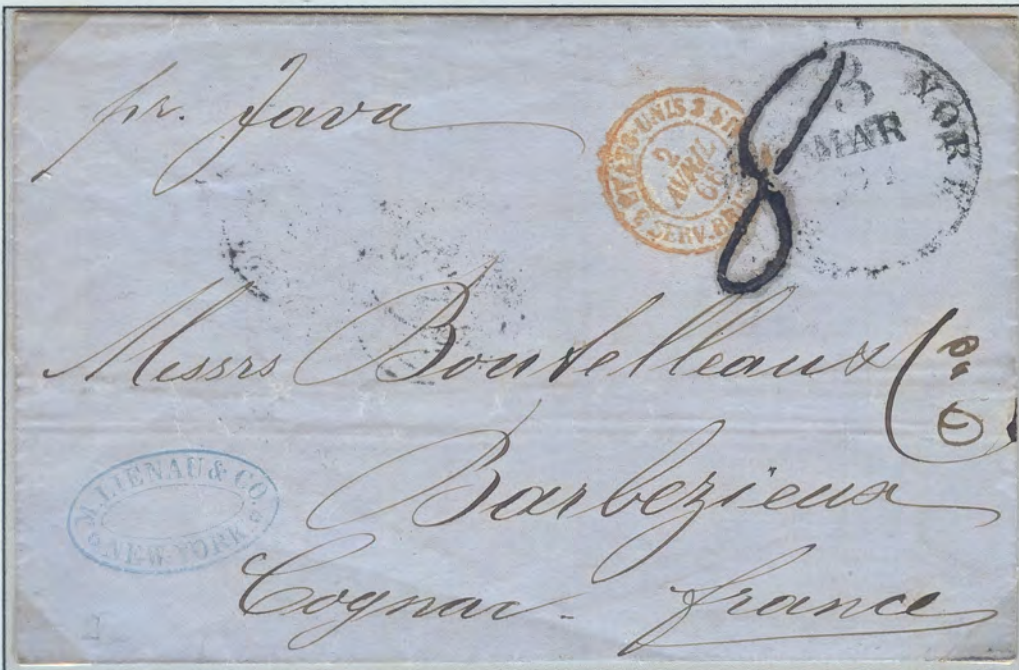 pr. Java
ETATS-UNIS 3 SERV. BR
2
AVRIL
66
8
3
MAR
YORK
Messrs Boutelleaux
Barbezieux
Cognac - france
M. LIENAU & CO.
NEW-YORK